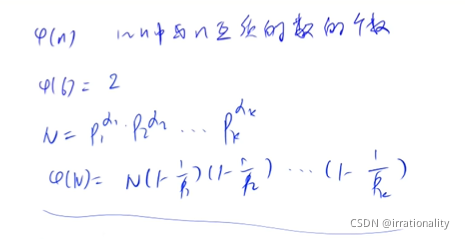 φ(n) 1~n中与n互质的数的个数
φ(6) = 2
N = p₁^α₁ · p₂^α₂ ... pₖ^αₖ
φ(N) = N(1-1/p₁)(1-1/p₂) ... (1-1/pₖ)
CSDN @irrationality